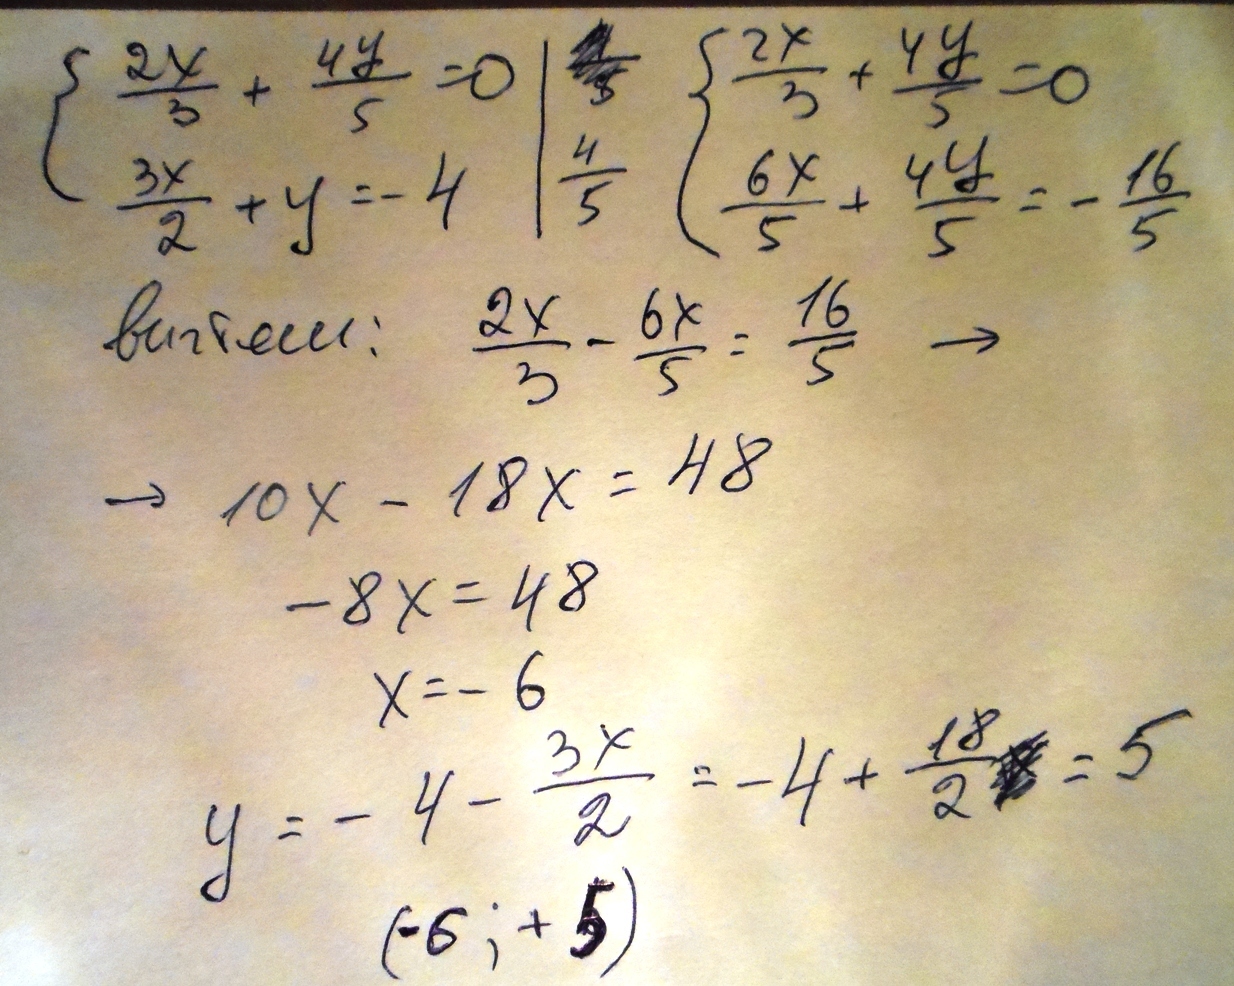 { 2x/3 + 4y/5 = 0 | { 2x/3 + 4y/5 = 0
3x/2 + y = - 4 | 4/5 6x/5 + 4y/5 = - 16/5
вычтем: 2x/3 - 6x/5 = 16/5 →
→ 10x - 18x = 48
-8x = 48
x = - 6
y = - 4 - 3x/2 = -4 + 18/2 = 5
(-6 ; + 5)